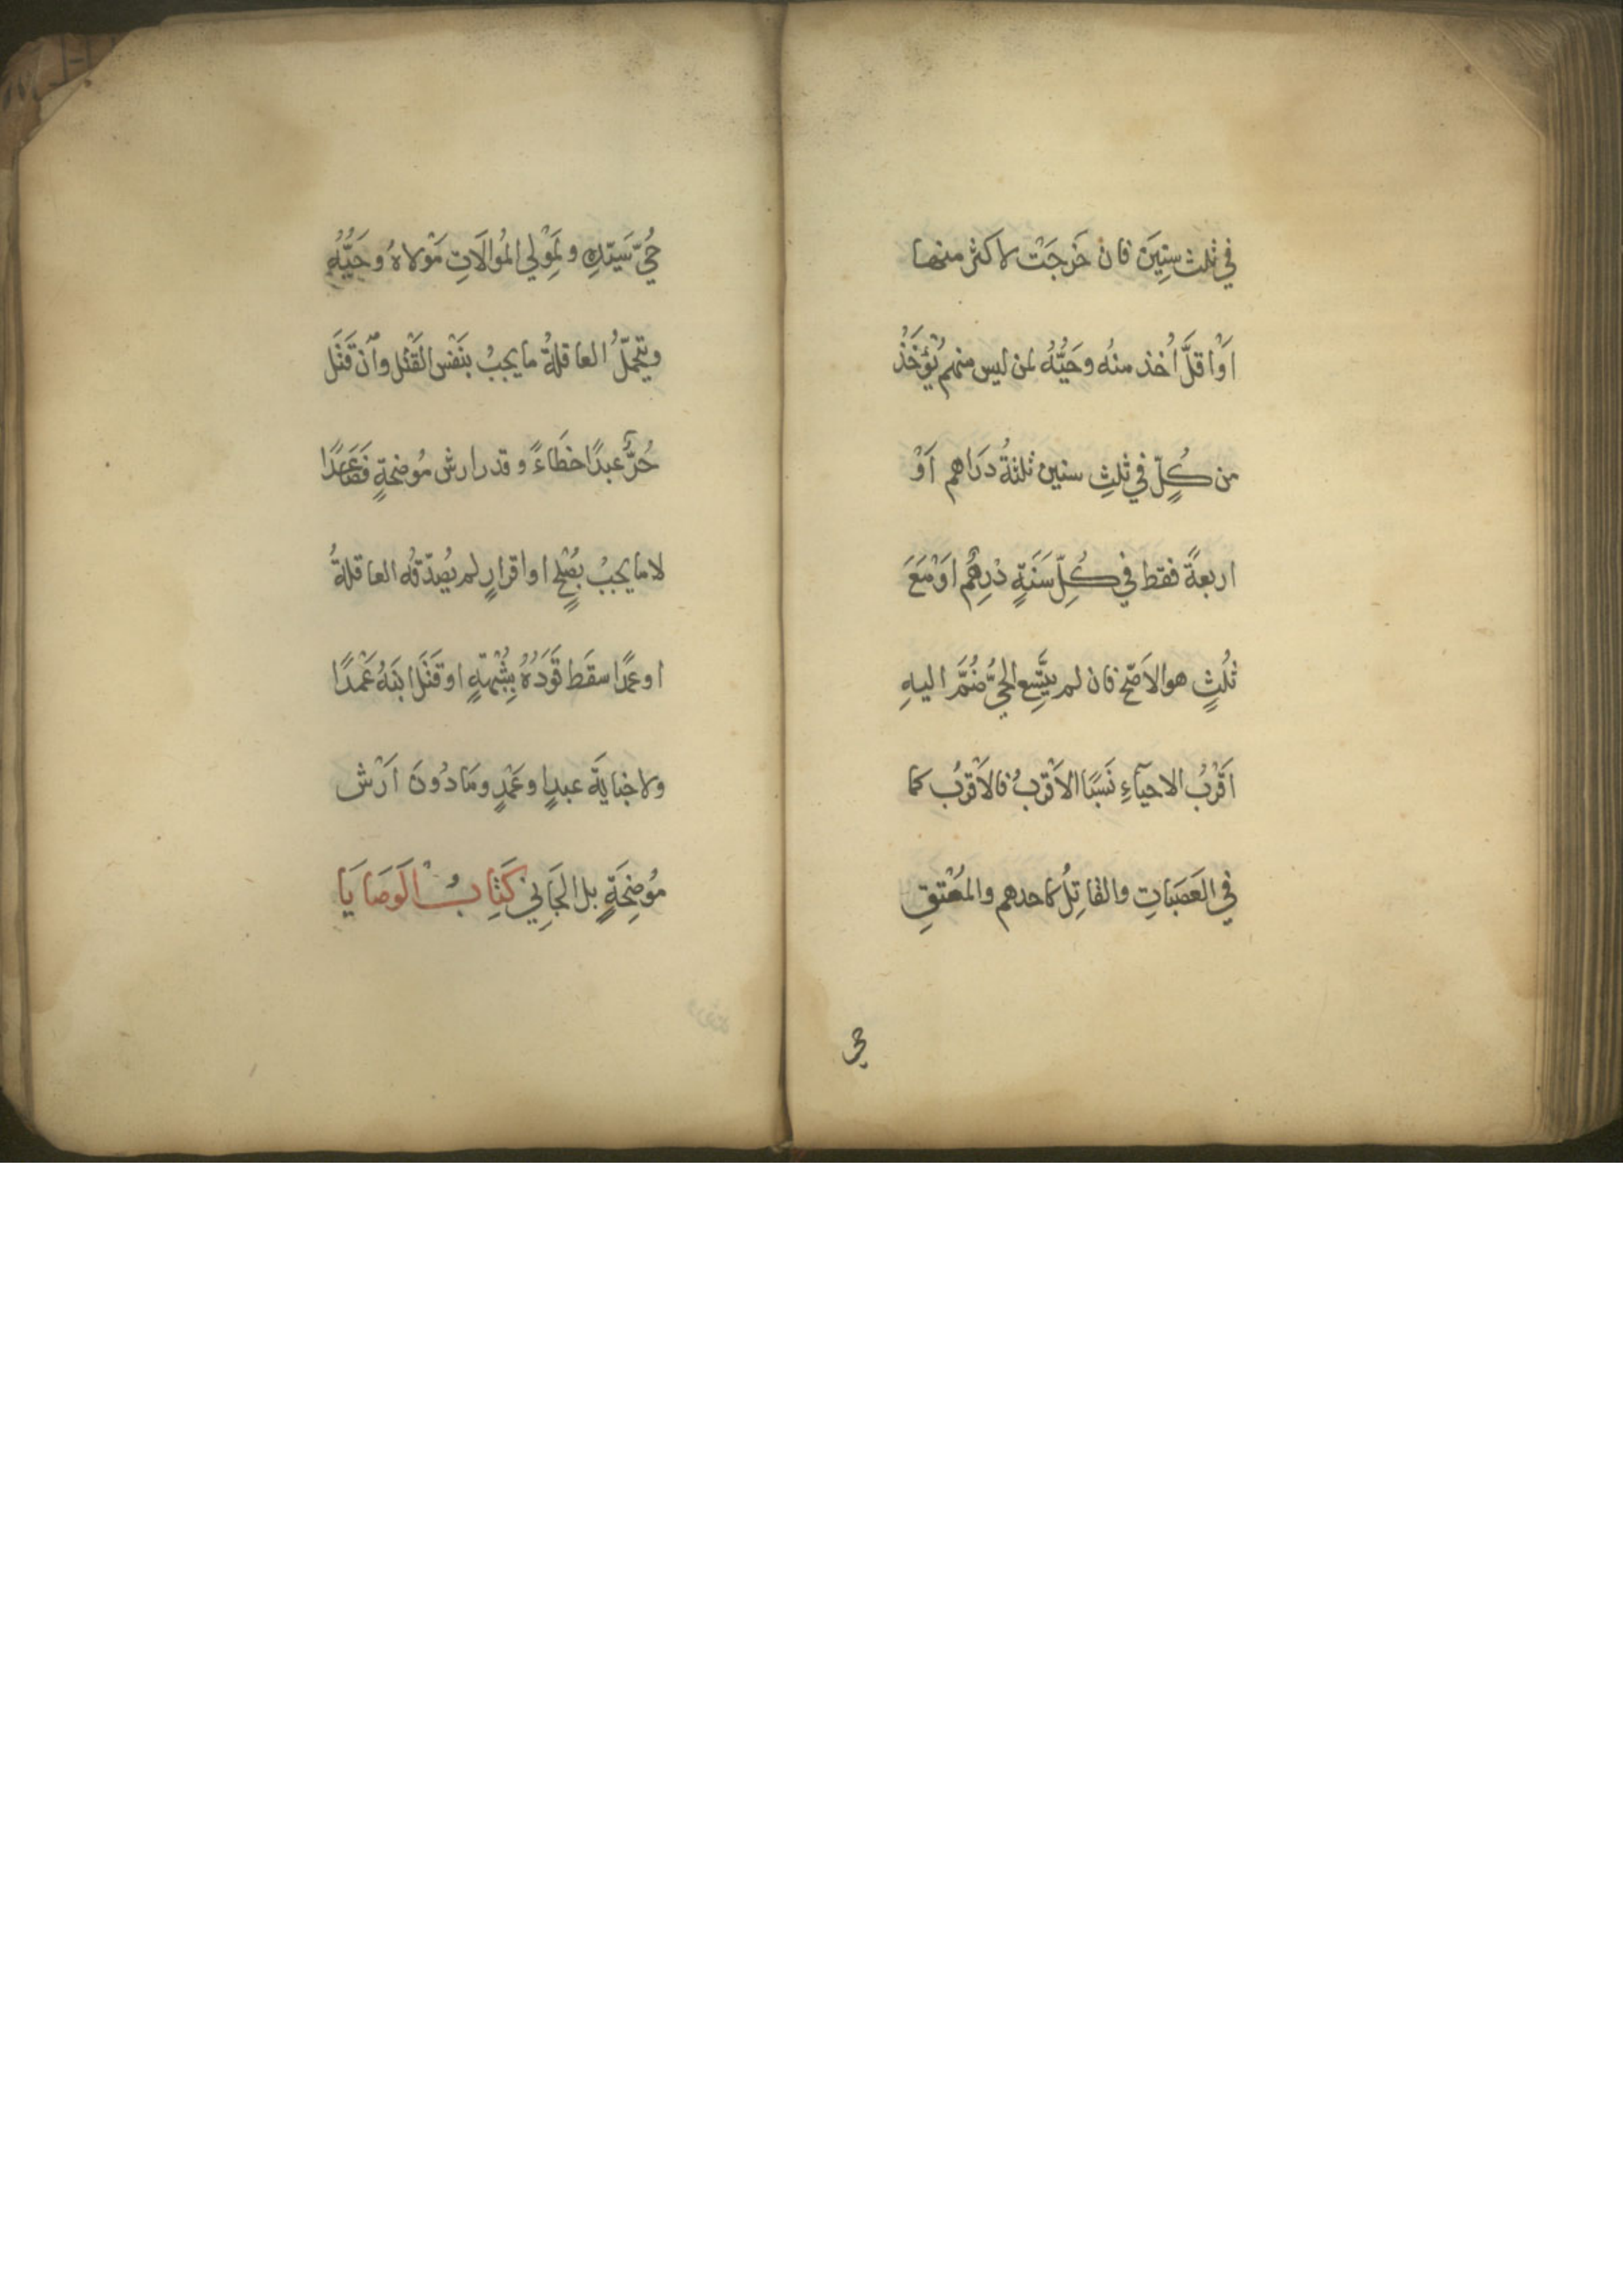 في ثلث سنِينَ فان خَرجَتْ لاكثر منها
اَوْ اقلَّ اُخذ منْه وحَيُّهُ لمن ليس منهم يُؤْخَذُ
من كُلٍّ في ثلثِ سنين ثلثةُ دَرَاهم اَوْ
اربعةً فقط في كُلِّ سَنَةٍ دْرِهَمُ اوْ مَعَ
ثلُثٍ هو الاَصّح فان لم يتَّسِع الحيُّ ضُمَّ اليهِ
اَقْرْبُ الاحيآءِ نَسَبًا الاَقْرَبُ فالاَقْرَبُ كما
في العَصَبَاتِ والقَاتِلُ كاحدهم والمُعْتَقِ
حي
حُيّ سَيّدِهِ ولمَوْلي المُوالَاتِ مَوْلاهُ وحَيُّهُ
ويتحمّلُ العاقلةُ ما يجبُ بنَفْس القَتْل وٱنْ قَتَل
حُرٌّ عبدًا خطَاءً وقدر ارش مُوضحةٍ فصَاعِدًا
لا ما يجبُ بصُلْحٍ او اقرارٍ لم يُصدّقْه العاقلةُ
او عمدًا سقَط قَوَدُهُ بِشُبْهةٍ او قَتَل ابنَهُ عَمْدًا
ولا جنايَةَ عبدٍ او عَمْدٍ ومَا دُونَ اَرْش
مُوضِحَةٍ بل الجَاني كتَابُ الوَصَايَا